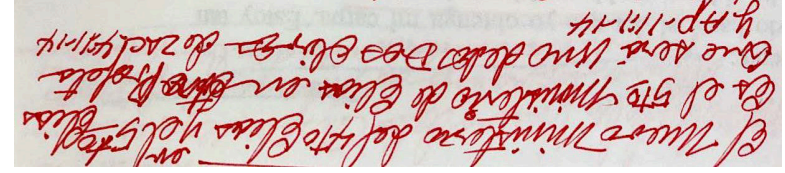 El Nuevo Ministerio del 4to Elias y el 5to Elias
en
Es el 5to Ministerio de Elias en Profeta
Que será Uno delos Dos Olivos de Zac 4:1-14
y Ap-11:1-14